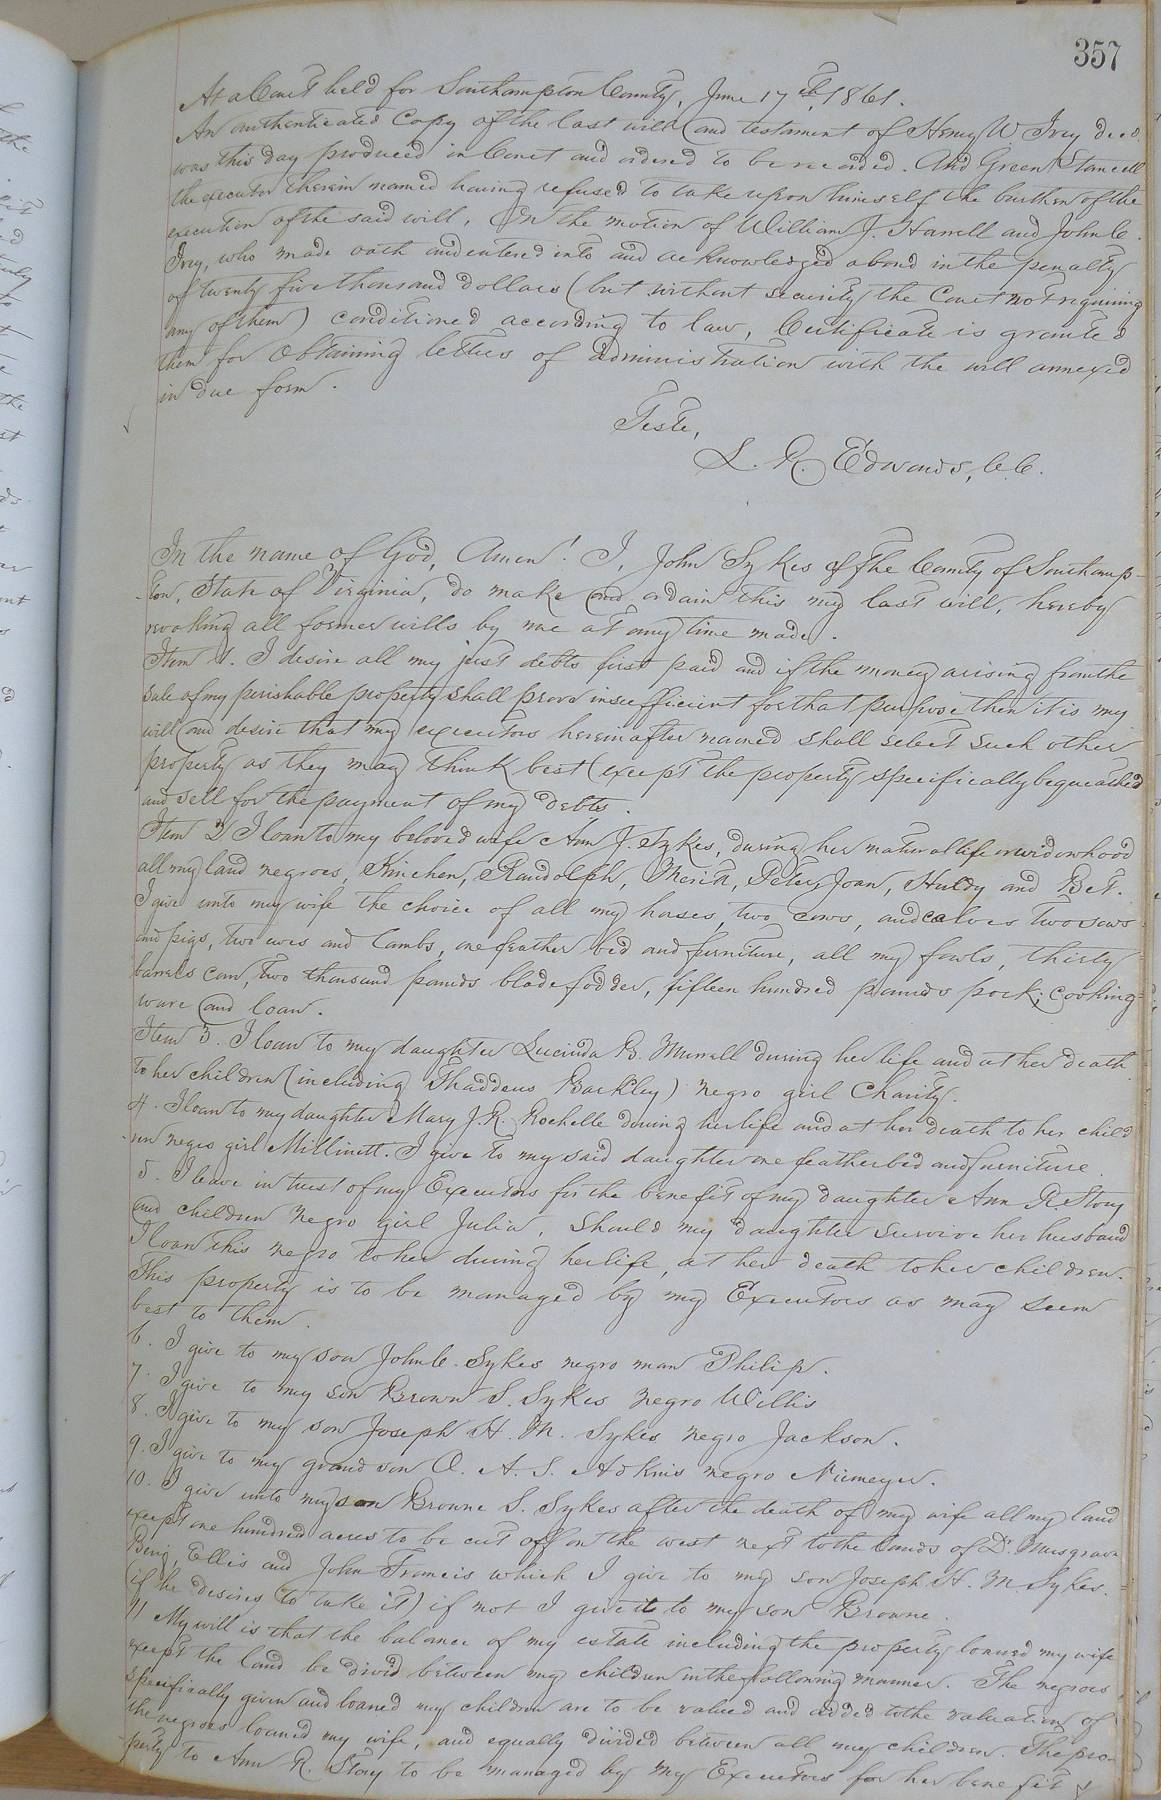 357
At a Court held for Southampton County, June 17th, 1861.
An authenticated Copy of the last will and testament of Henry W. Ivey decd.
was this day produced in Court and ordered to be recorded. And Green Stancell
the executor therein named having refused to take upon himself the burthen of the
execution of the said will, On the motion of William J. Harrell and John C.
Ivey, who made oath and entered into and acknowledged a bond in the penalty
of twenty five thousand dollars (but without security, the Court not requiring
any of them) conditioned according to law, Certificate is granted
them for obtaining letters of administration with the will annexed
in due form.
Teste,
L. R. Edwards, C.C.
In the name of God, Amen! I, John Sykes of the County of Southamp-
-ton, State of Virginia, do make and ordain this my last will, hereby
revoking all former wills by me at any time made.
Item 1. I desire all my just debts first paid and if the money arising from the
sale of my perishable property shall prove insufficient for that purpose then it is my
will and desire that my executors hereinafter named shall select such other
property as they may think best (except the property specifically bequeathed
and sell for the payment of my debts.
Item 2 I loan to my beloved wife Ann J. Sykes, during her natural life or widowhood
all my land negroes, Kinchen, Randolph, Merit, Peter, Joan, Huldy and Bet.
I give unto my wife the choice of all my horses, two cows, and calves two sows
and pigs, two ewes and lambs, one feather bed and furniture, all my fowls, thirty
barrels corn, two thousand pounds blade fodder, fifteen hundred pounds pork; cooking
ware and loan.
Item 3. I loan to my daughter Lucinda B. Murrell during her life and at her death
to her children (including Thaddeus Barkley) negro girl Charity.
4. I loan to my daughter Mary J. R. Rochelle during her life and at her death to her child
-ren negro girl Millinett. I give to my said daughter one featherbed and furniture.
5. I leave in trust of my Executors for the benefit of my daughter Ann R. Story
and children negro girl Julia, should my daughter survive her husband
I loan this negro to her during her life, at her death to her children.
This property is to be managed by my Executors as may seem
best to them.
6. I give to my son John C. Sykes negro man Philip.
7. I give to my son Brown S. Sykes negro Willis
8. I give to my son Joseph H. M. Sykes negro Jackson.
9. I give to my grand son O. A. S. Adkins negro Niemeyer.
10. I give unto my son Browne S. Sykes after the death of my wife all my land
except one hundred acres to be cut off on the west next to the lands of Dr. Musgrave
Benj, Ellis and John Francis which I give to my son Joseph H. M Sykes.
(if he desires to take it) if not I give it to my son Browne.
11 My will is that the balance of my estate including the property loaned my wife
except the land be divid between my children in the following manner. The negroes
specifically given and loaned my children are to be valued and added to the valuation of
the negroes loaned my wife, and equally divided between all my children. The pro-
perty to Ann R. Story to be managed by my Executors for her benefit &